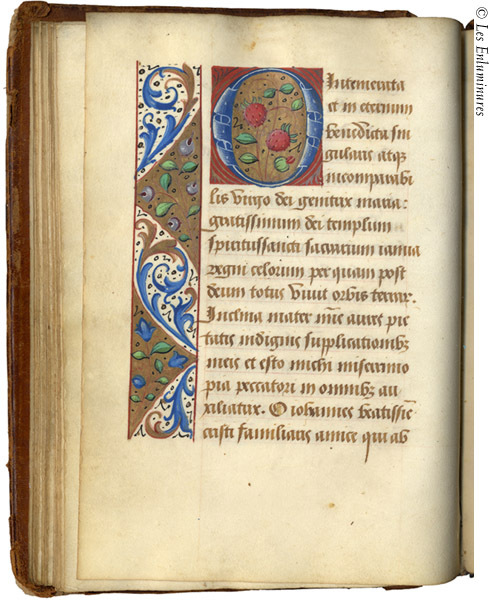 O Intemerata
et in eternum
benedicta sin
gularis atqꝫ
incomparabi
lis virgo dei genitrix maria:
gratissimum dei templum
spiritussancti sacrarium ianua
regni celorum per quam post
deum totus vivit orbis terrar.
Inclina mater mīe aures pie
tatis indignis supplicationibꝫ
meis et esto michi miserrimo
pia peccatori in omnibꝫ au
xiliatrix. O iohannes beatissīe
cristi familiaris amice qui ab
© Les Enluminures